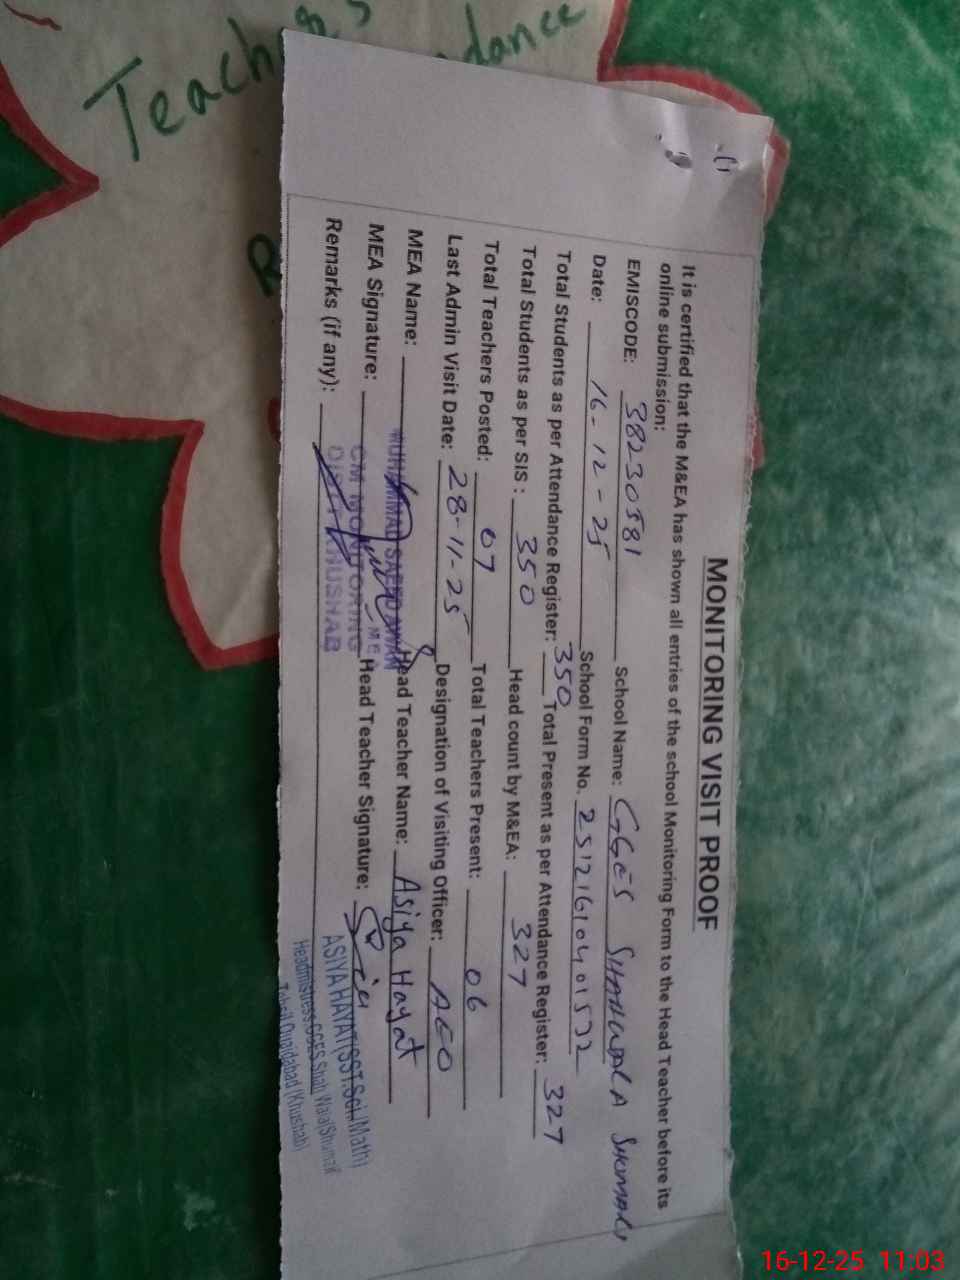 Teachers
dance
R
MONITORING VISIT PROOF
It is certified that the M&EA has shown all entries of the school Monitoring Form to the Head Teacher before its
online submission:
EMISCODE: 38230581 School Name: GGES SHAHWALA SHOMALI
Date: 16-12-25 School Form No. 25121610401532
Total Students as per Attendance Register: 350 Total Present as per Attendance Register: 327
Total Students as per SIS : 350 Head count by M&EA: 327
Total Teachers Posted: 07 Total Teachers Present: 06
Last Admin Visit Date: 28-11-25 Designation of Visiting Officer: AEO
MEA Name: MUHAMMAD SAEED AWAN Head Teacher Name: Asiya Hayat
MEA Signature: CM MONITORING Head Teacher Signature:
Remarks (if any): DISTT KHUSHAB
ASIYA HAYAT(SST.Sci./Math)
Headmistress GGES Shah Wala Shumali
Tehsil Quaidabad (Khushab)
16-12-25 11:03